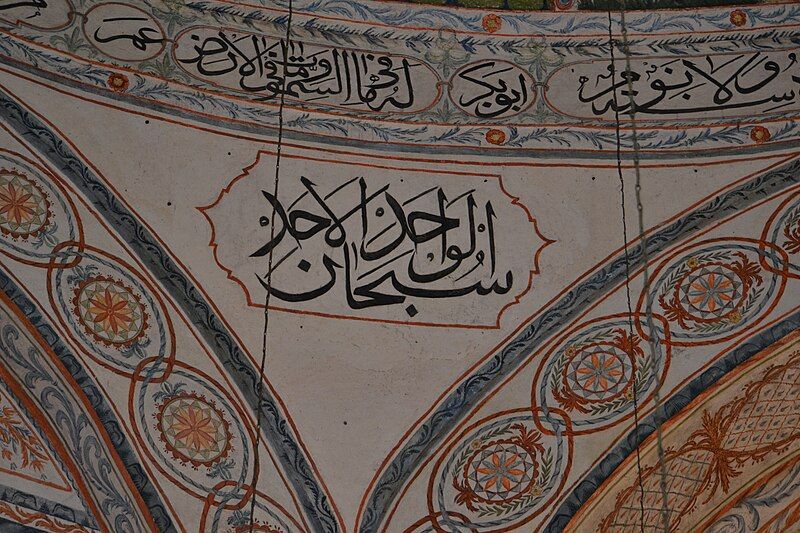 سنة ولا نوم
ابوبكر
له ما في السموات وما في الارض
عمر
سبحان الواحد الاحد